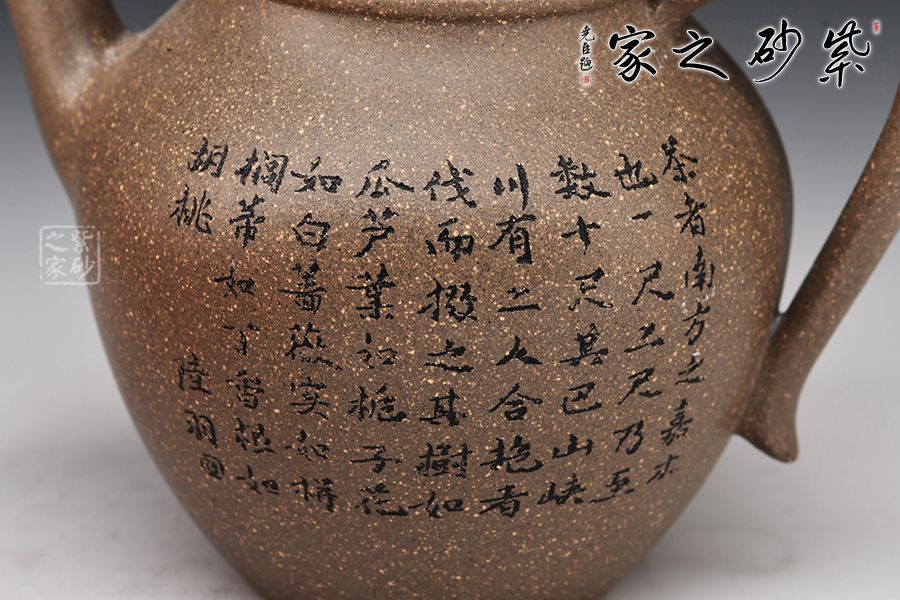 紫砂之家
尧臣题
茶者南方之嘉木
也一尺二尺乃至
数十尺其巴山峡
川有二人合抱者
伐而掇之其樹如
瓜芦葉如栀子花
如白蔷薇实如栟
榈蒂如丁香根如
胡桃
陸羽
紫砂之家